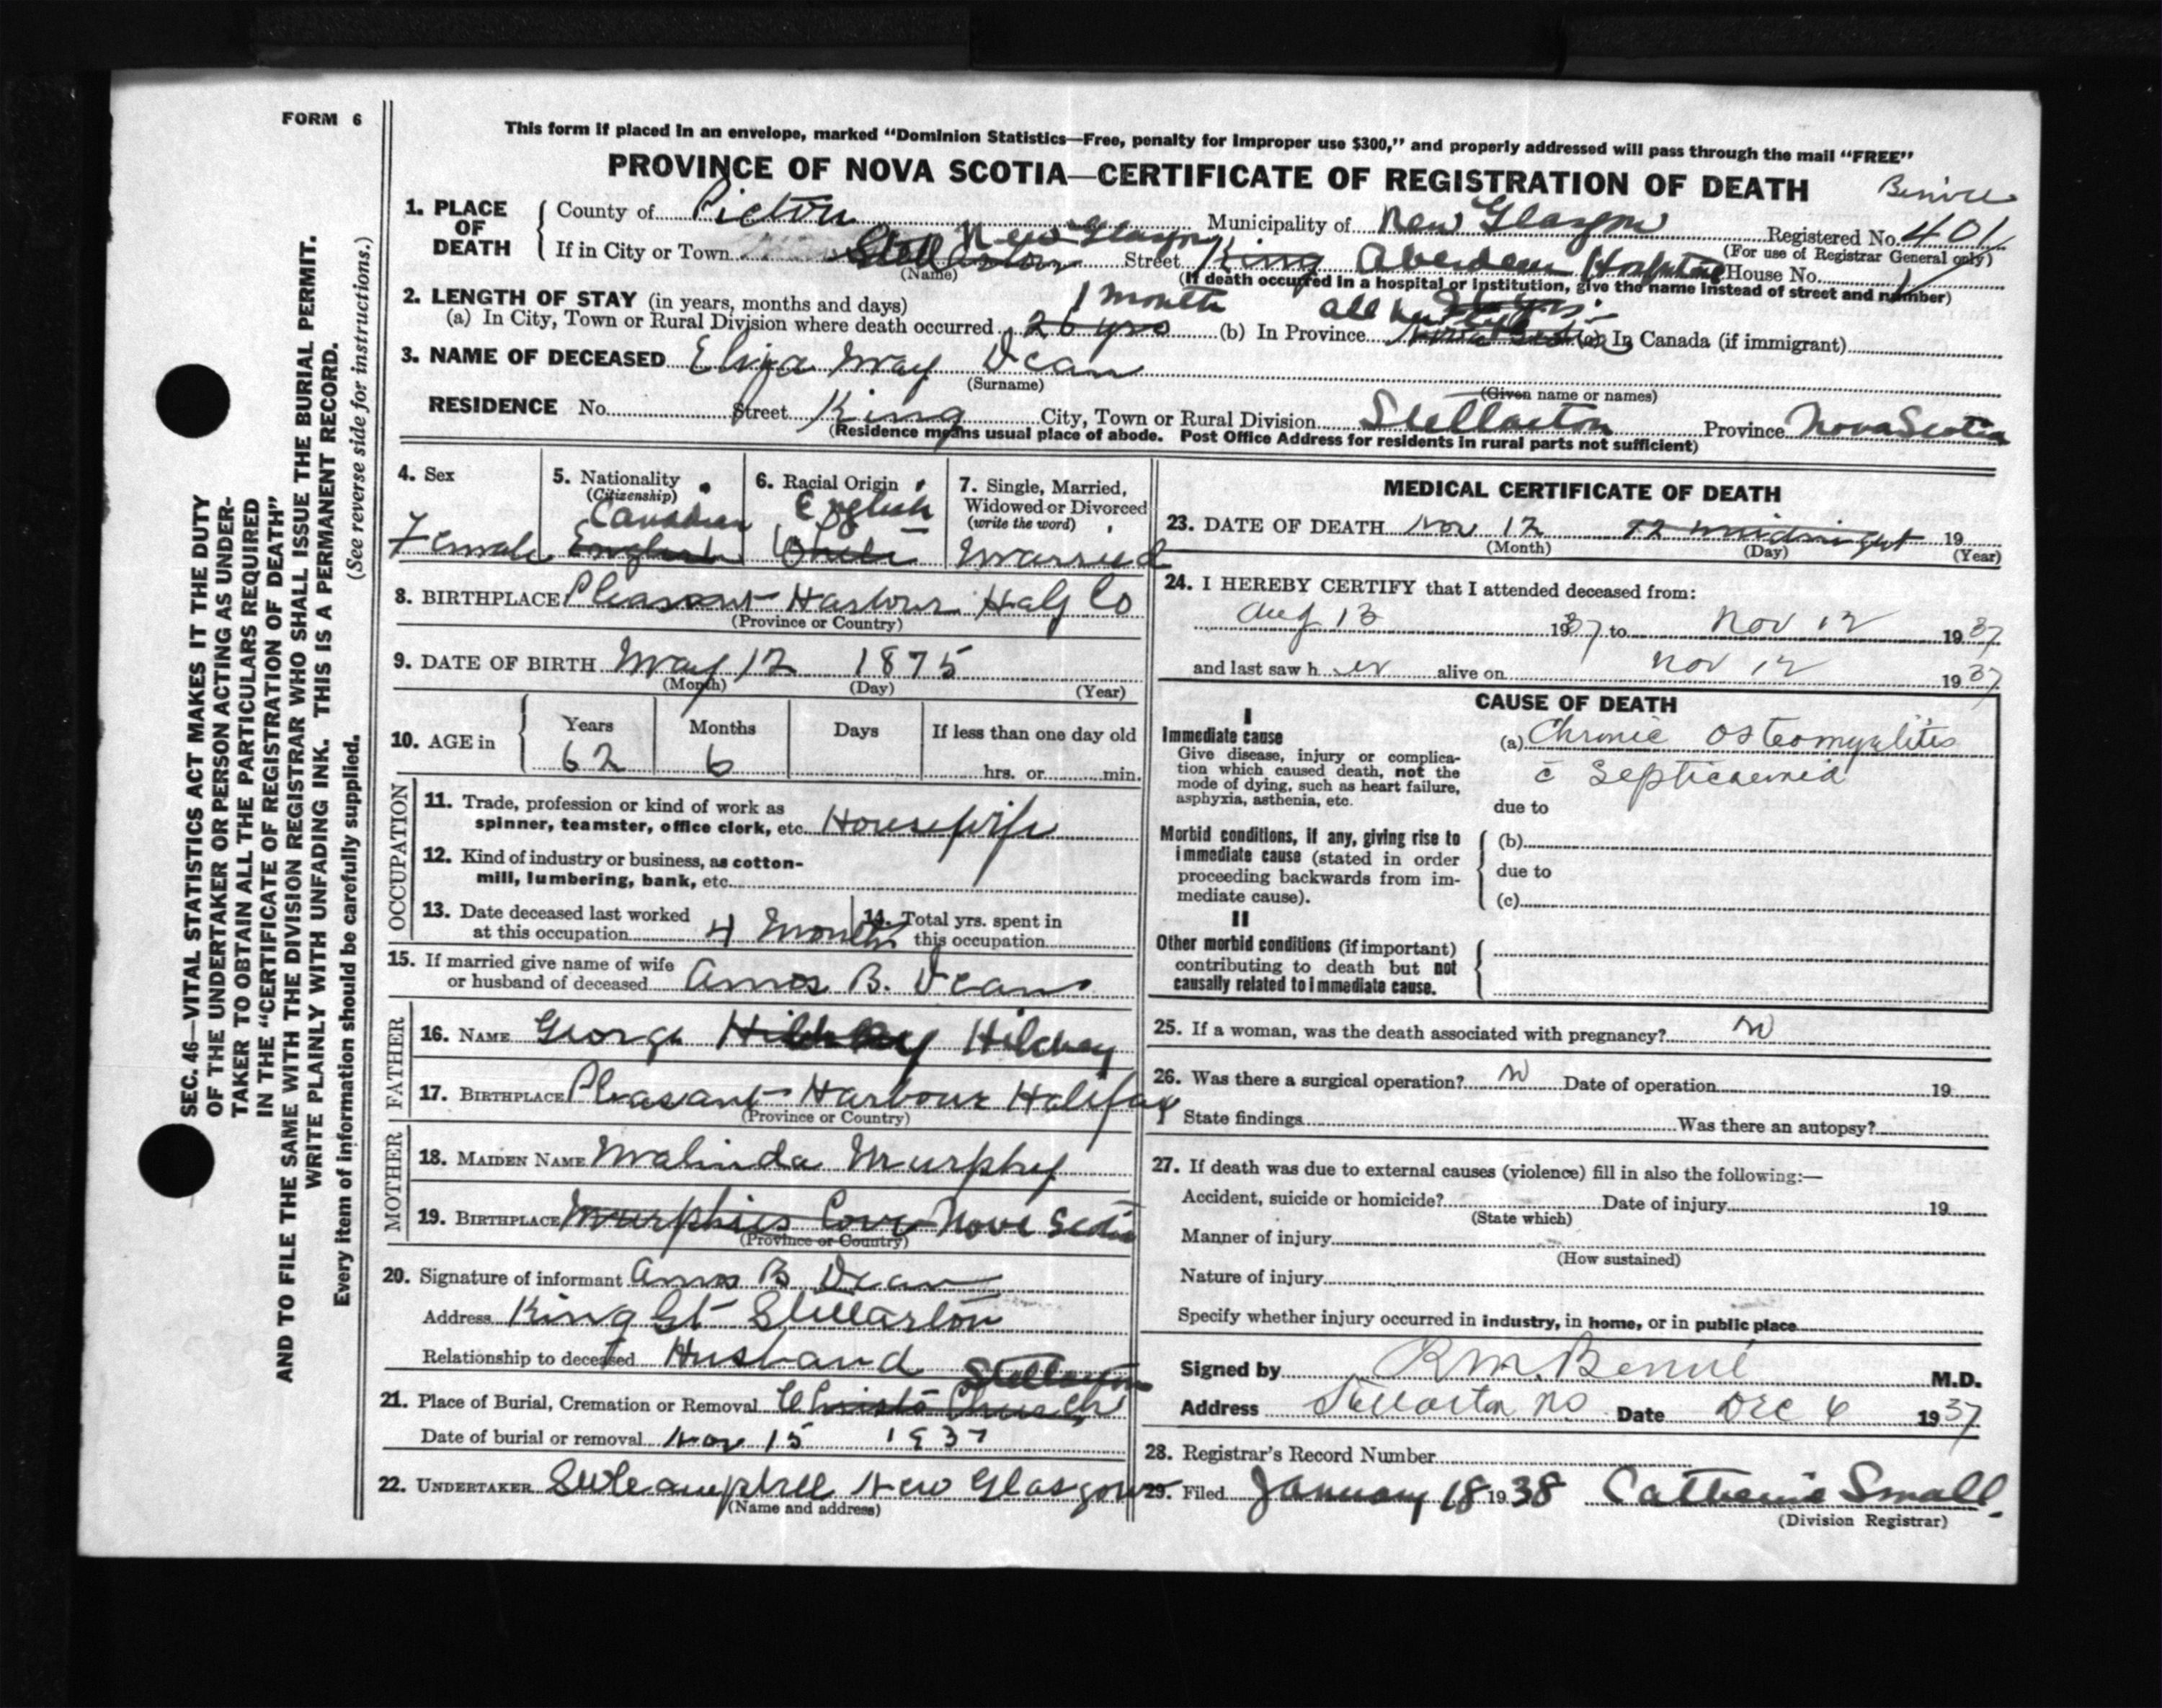 FORM 6
This form if placed in an envelope, marked “Dominion Statistics—Free, penalty for improper use $300,” and properly addressed will pass through the mail “FREE”
PROVINCE OF NOVA SCOTIA—CERTIFICATE OF REGISTRATION OF DEATH
1. PLACE OF DEATH
County of Pictou Municipality of New Glasgow Registered No. 401
(For use of Registrar General only)
If in City or Town Stellarton New Glasgow Street King Aberdean Hospital House No.
(Name) (If death occurred in a hospital or institution, give the name instead of street and number)
2. LENGTH OF STAY (in years, months and days)
(a) In City, Town or Rural Division where death occurred 26 yrs 1 month (b) In Province all her life (c) In Canada (if immigrant)
3. NAME OF DECEASED Eliza May Dean
(Surname) (Given name or names)
RESIDENCE No. Street King City, Town or Rural Division Stellarton Province Nova Scotia
(Residence means usual place of abode. Post Office Address for residents in rural parts not sufficient)
4. Sex
Female
5. Nationality
(Citizenship)
Canadian
English
6. Racial Origin
English
White
7. Single, Married,
Widowed or Divorced
(write the word)
Married
8. BIRTHPLACE Pleasant Harbour Half Co
(Province or Country)
9. DATE OF BIRTH May 12 1875
(Month) (Day) (Year)
10. AGE in
Years Months Days If less than one day old
62 6 hrs. or min.
OCCUPATION
11. Trade, profession or kind of work as
spinner, teamster, office clerk, etc. Housewife
12. Kind of industry or business, as cotton-
mill, lumbering, bank, etc.
13. Date deceased last worked
at this occupation 4 Months
14. Total yrs. spent in
this occupation
15. If married give name of wife
or husband of deceased Amos B. Dean
FATHER
16. NAME George Hilchey
17. BIRTHPLACE Pleasant Harbour Halifax
(Province or Country)
MOTHER
18. MAIDEN NAME Malinda Murphy
19. BIRTHPLACE Murphies Cove Nova Scotia
(Province or Country)
20. Signature of informant Amos B Dean
Address King St Stellarton
Relationship to deceased Husband
21. Place of Burial, Cremation or Removal Christs Church Stellarton
Date of burial or removal Nov 15 1937
22. UNDERTAKER New Glasgow
(Name and address)
MEDICAL CERTIFICATE OF DEATH
23. DATE OF DEATH Nov 12 12 midnight 19
(Month) (Day) (Year)
24. I HEREBY CERTIFY that I attended deceased from:
Aug 13 1937 to Nov 12 1937
and last saw h er alive on Nov 12 1937
CAUSE OF DEATH
I
Immediate cause
Give disease, injury or complica-
tion which caused death, not the
mode of dying, such as heart failure,
asphyxia, asthenia, etc.
(a) Chronic Osteomyelites
c̄ Septicaemia
due to
Morbid conditions, if any, giving rise to
immediate cause (stated in order
proceeding backwards from im-
mediate cause).
(b)
due to
(c)
II
Other morbid conditions (if important)
contributing to death but not
causally related to immediate cause.
25. If a woman, was the death associated with pregnancy? no
26. Was there a surgical operation? no Date of operation 19
State findings Was there an autopsy?
27. If death was due to external causes (violence) fill in also the following:—
Accident, suicide or homicide? Date of injury 19
(State which)
Manner of injury
(How sustained)
Nature of injury
Specify whether injury occurred in industry, in home, or in public place
Signed by R M. Benvie M.D.
Address Stellarton NS Date Dec 6 1937
28. Registrar's Record Number
29. Filed January 18 1938 Catherine Small.
(Division Registrar)
Benvie
SEC. 46—VITAL STATISTICS ACT MAKES IT THE DUTY
OF THE UNDERTAKER OR PERSON ACTING AS UNDER-
TAKER TO OBTAIN ALL THE PARTICULARS REQUIRED
IN THE “CERTIFICATE OF REGISTRATION OF DEATH”
AND TO FILE THE SAME WITH THE DIVISION REGISTRAR WHO SHALL ISSUE THE BURIAL PERMIT.
WRITE PLAINLY WITH UNFADING INK. THIS IS A PERMANENT RECORD.
Every item of information should be carefully supplied. (See reverse side for instructions.)